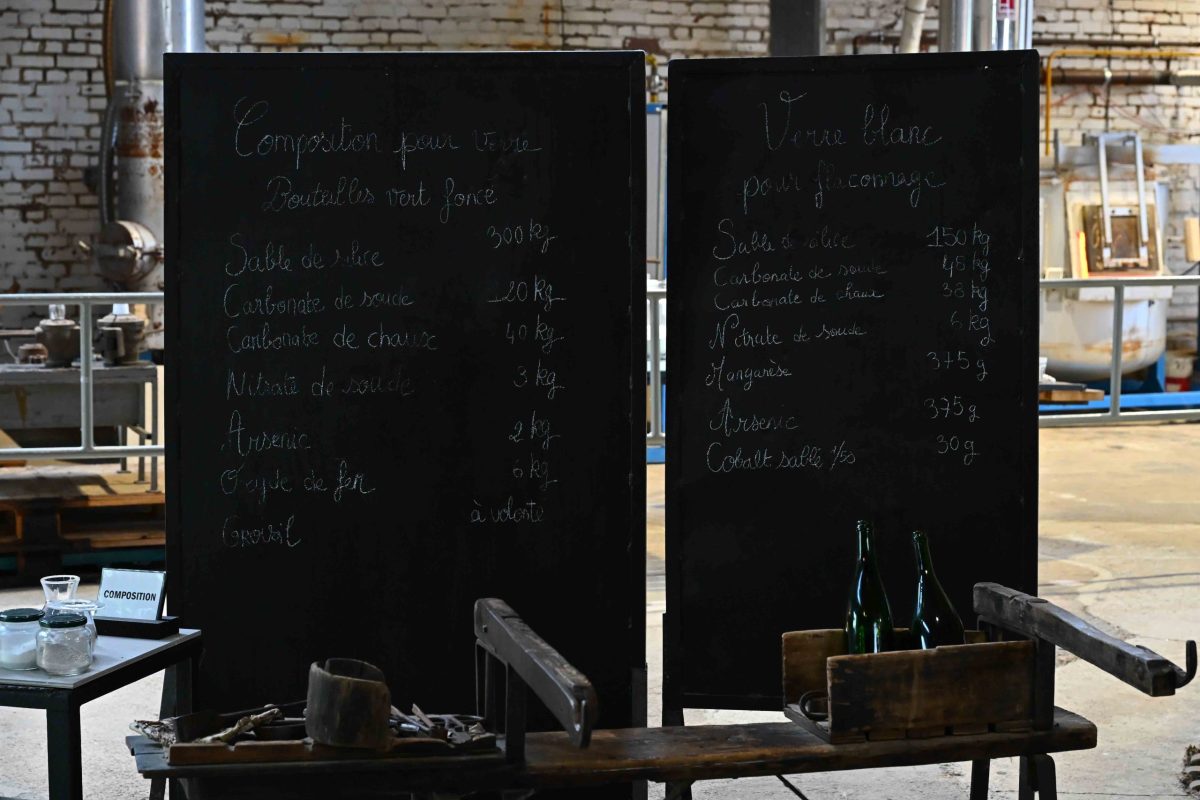 Composition pour verre
Bouteilles vert foncé
Sable de silice 300 kg
Carbonate de soude 120 kg
Carbonate de chaux 40 kg
Nitrate de soude 3 kg
Arsenic 2 kg
Oxyde de fer 6 kg
Groisil à volonté
Verre blanc
pour flaconnage
Sable de silice 150 kg
Carbonate de soude 45 kg
Carbonate de chaux 38 kg
Nitrate de soude 6 kg
Manganèse 375 g
Arsenic 375 g
Cobalt sablé 1/50 30 g
COMPOSITION